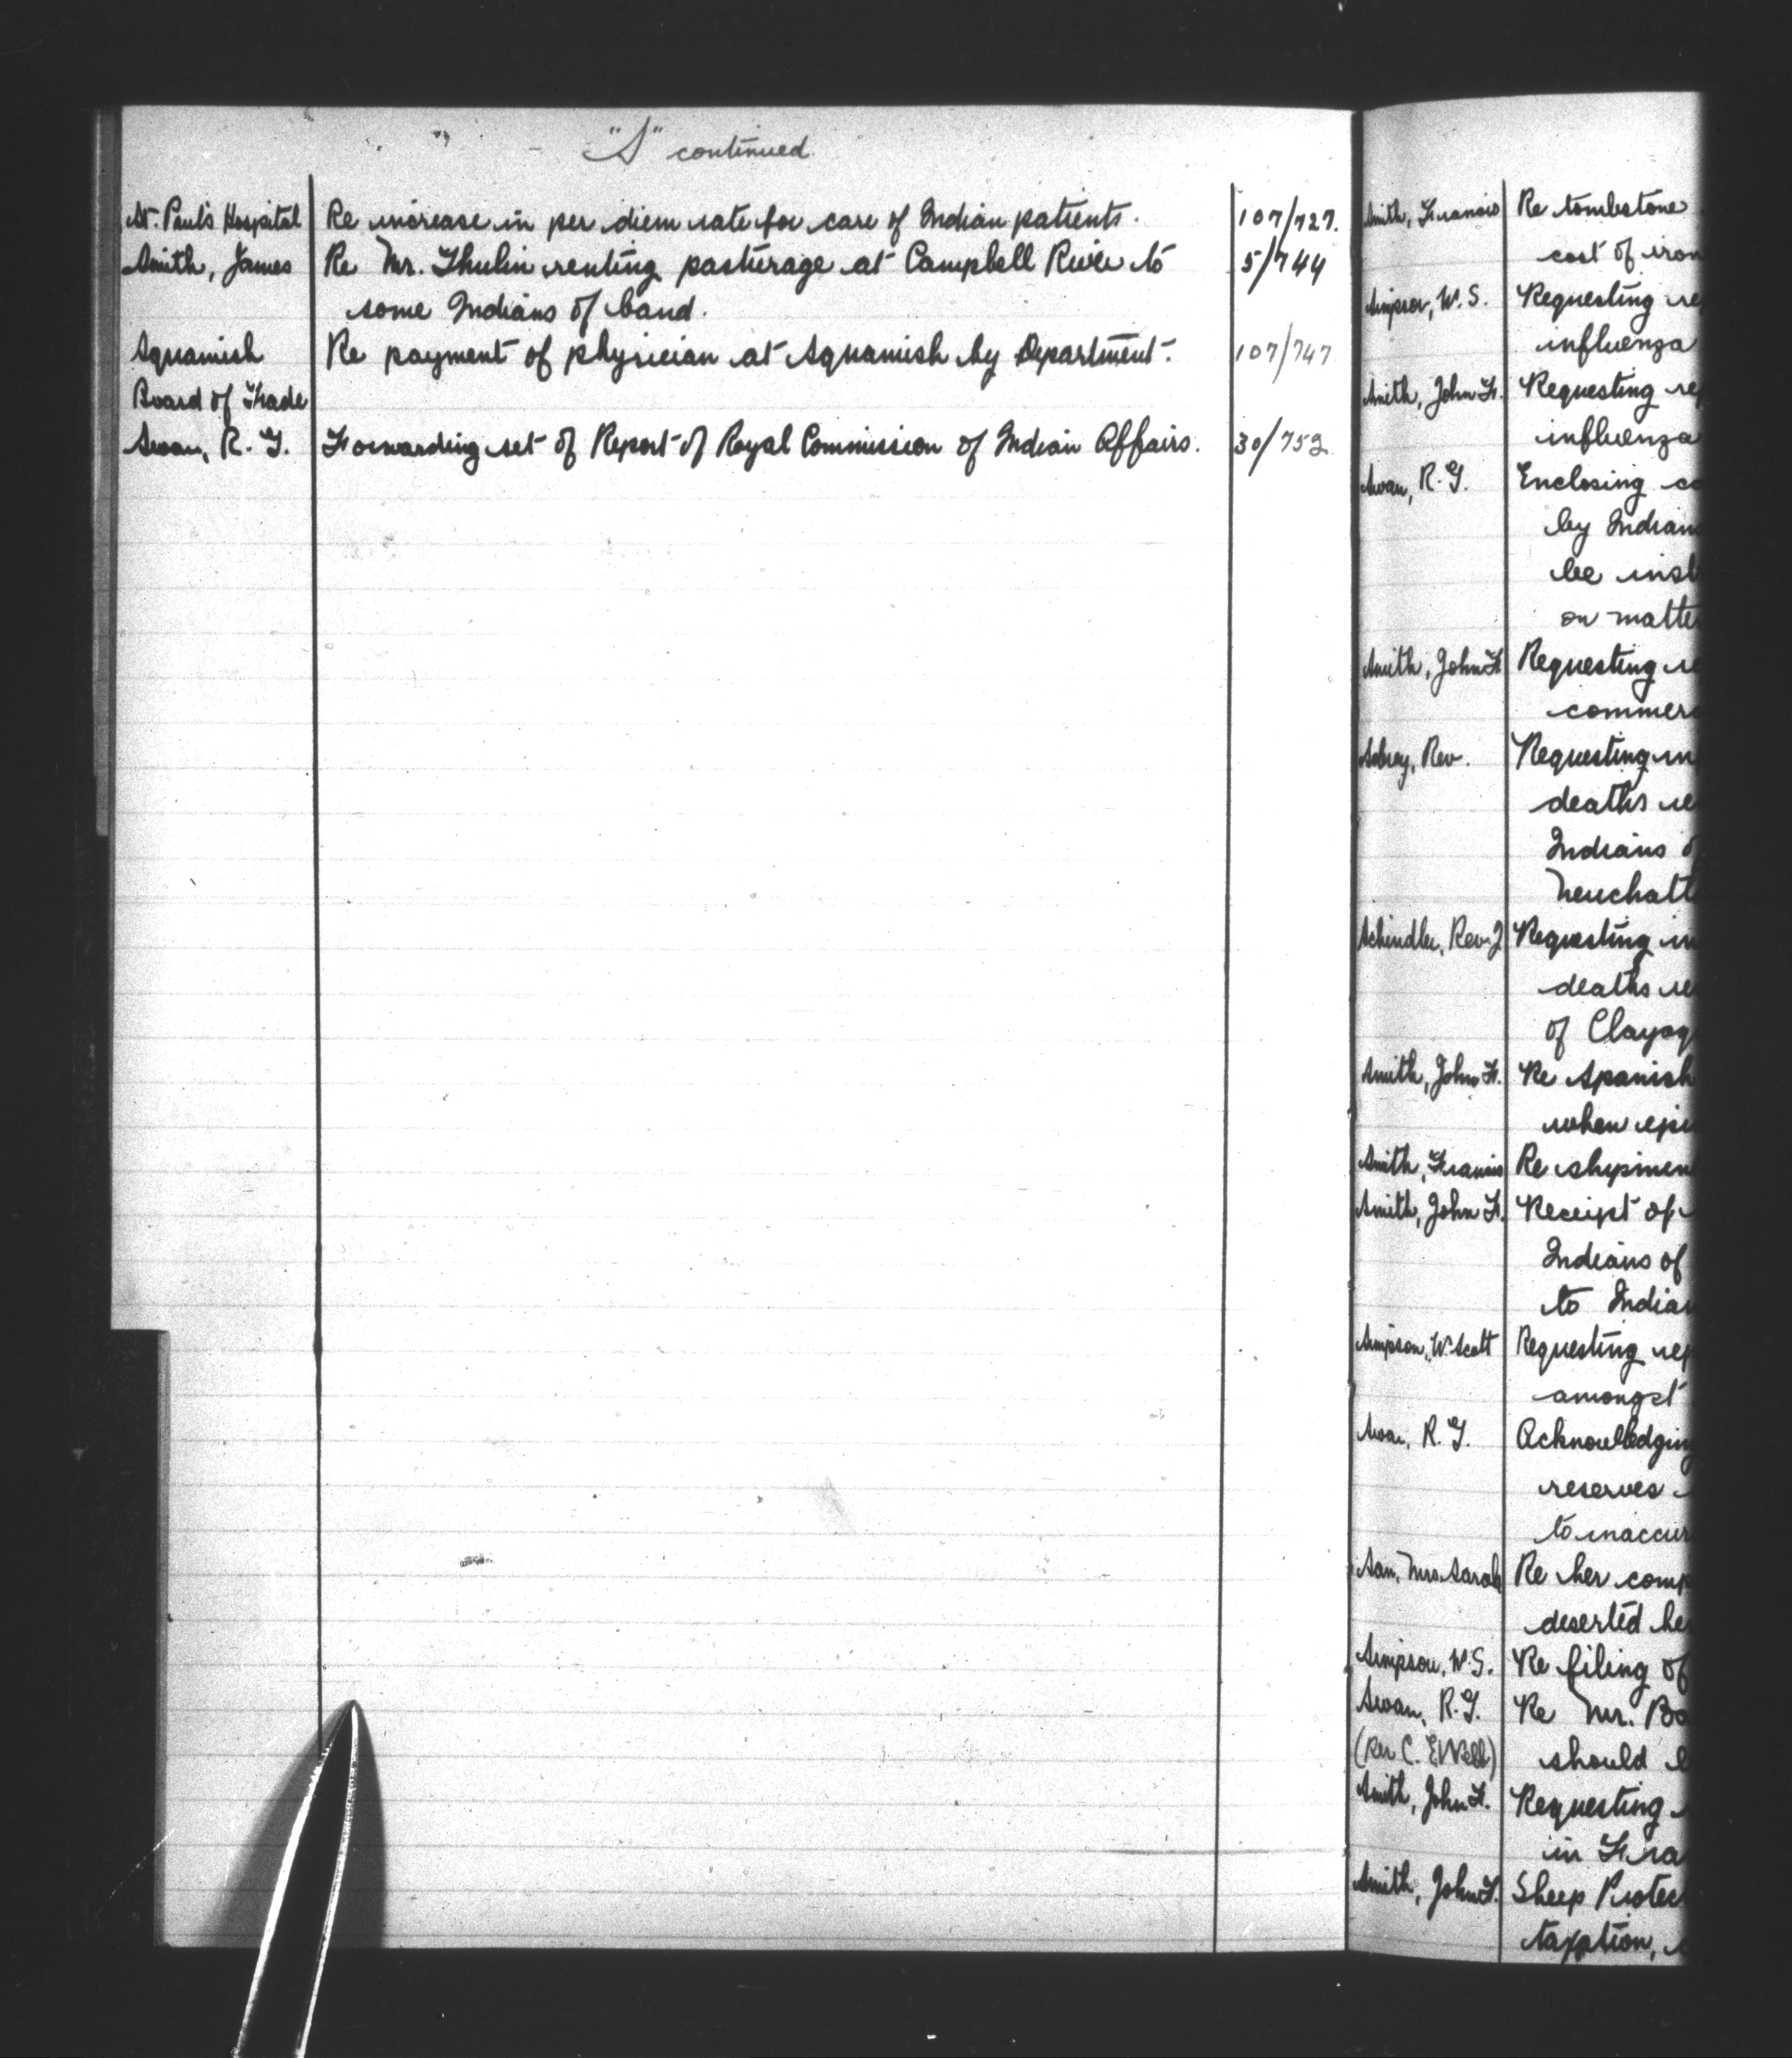 "S" continued
St. Paul's Hospital Re increase in per diem rate for care of Indian patients. 107/727.
Smith, James Re Mr. Thulin renting pasturage at Campbell River to 5/744
some Indians of band.
Squamish Re payment of physician at Squamish by Department. 107/747
Board of Trade
Swan, R. G. Forwarding set of Report of Royal Commission of Indian Affairs. 30/752
Smith, Francis Re tombstone
cost of iron
Simpson, W. S. Requesting re
influenza
Smith, John F. Requesting rep
influenza
Swan, R. G. Enclosing co
by Indians
be inst
on matte
Smith, John F. Requesting re
commerc
Rev. Requesting in
deaths re
Indians of
Neuchatl
Schindler, Rev. J. Requesting in
deaths re
of Clayoq
Smith, John F. Re Spanish
when epi
Smith, Francis Re shipmen
Smith, John F. Receipt of
Indians of
to Indian
Simpson, W. Scott Requesting rep
amongst
Swan, R. G. Acknowledging
reserves
to inaccur
Sam, Mrs. Sarah Re her comp
deserted he
Simpson, W. S. Re filing of
Swan, R. G. Re Mr. Bo
(Per C. ) should b
Smith, John F. Requesting
in Fra
Smith, John F. Sheep Protec
taxation,